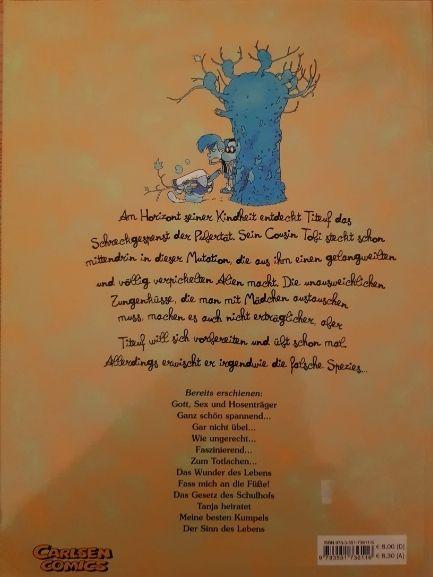 Am Horizont seiner Kindheit entdeckt Titeuf das
Schreckgespenst der Pubertät. Sein Cousin Tobi steckt schon
mittendrin in dieser Mutation, die aus ihm einen gelangweilten
und völlig verpickelten Alien macht. Die unausweichlichen
Zungenküsse, die man mit Mädchen austauschen
muss, machen es auch nicht erträglicher, aber
Titeuf will sich vorbereiten und übt schon mal.
Allerdings erwischt er irgendwie die falsche Spezies...
Bereits erschienen:
Gott, Sex und Hosenträger
Ganz schön spannend...
Gar nicht übel...
Wie ungerecht...
Faszinierend...
Zum Totlachen...
Das Wunder des Lebens
Fass mich an die Füße!
Das Gesetz des Schulhofs
Tanja heiratet
Meine besten Kumpels
Der Sinn des Lebens
CARLSEN
COMICS
€ 8,00 (D)
€ 8,30 (A)